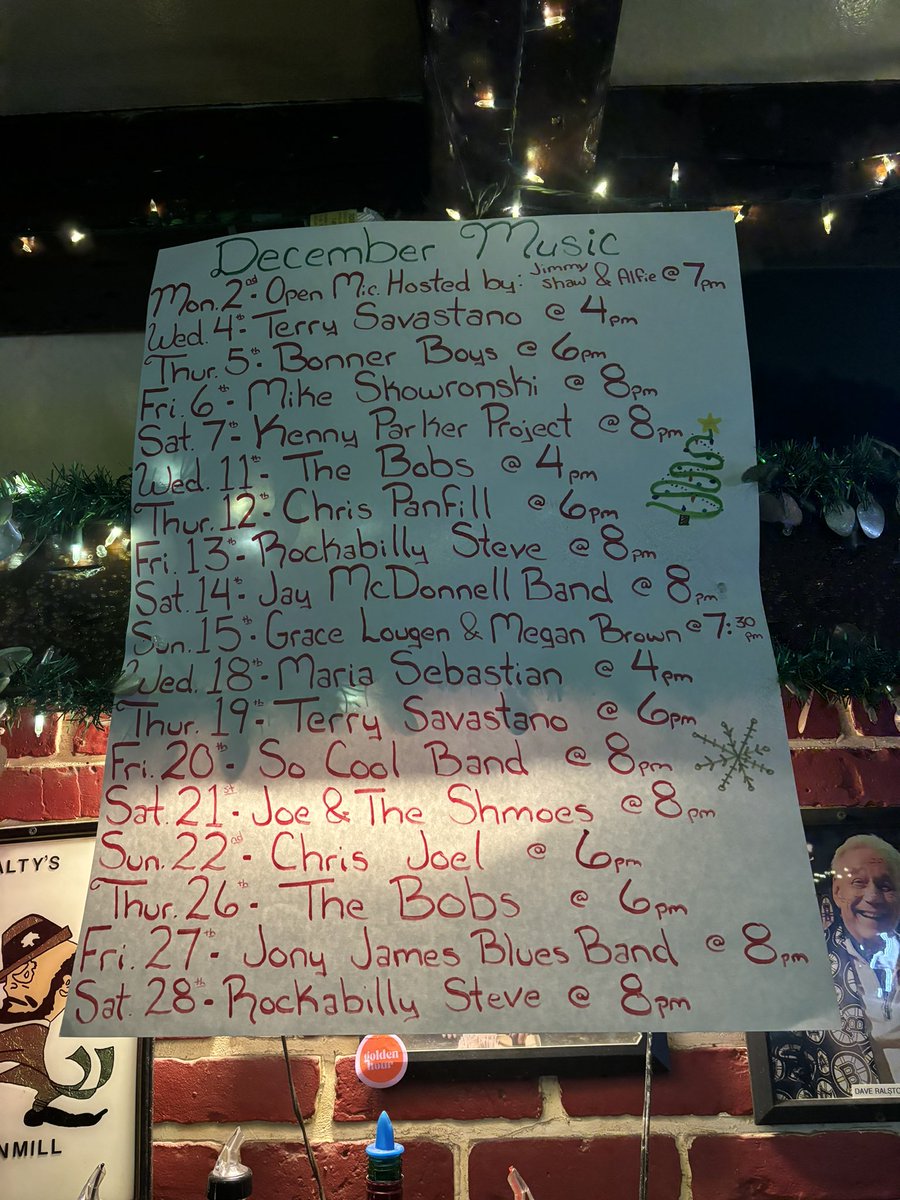 December Music
Mon. 2nd - Open Mic. Hosted by: Jimmy Shaw & Alfie @ 7pm
Wed. 4th - Terry Savastano @ 4pm
Thur. 5th - Bonner Boys @ 6pm
Fri. 6th - Mike Skowronski @ 8pm
Sat. 7th - Kenny Parker Project @ 8pm
Wed. 11th - The Bobs @ 4pm
Thur. 12th - Chris Panfill @ 6pm
Fri. 13th - Rockabilly Steve @ 8pm
Sat. 14th - Jay McDonnell Band @ 8pm
Sun. 15th - Grace Lougen & Megan Brown @ 7:30pm
Wed. 18th - Maria Sebastian @ 4pm
Thur. 19th - Terry Savastano @ 6pm
Fri. 20th - So Cool Band @ 8pm
Sat. 21st - Joe & The Shmoes @ 8pm
Sun. 22nd - Chris Joel @ 6pm
Thur. 26th - The Bobs @ 6pm
Fri. 27th - Jony James Blues Band @ 8pm
Sat. 28th - Rockabilly Steve @ 8pm
ALTY'S
NMILL
golden
hour
DAVE RALSTO